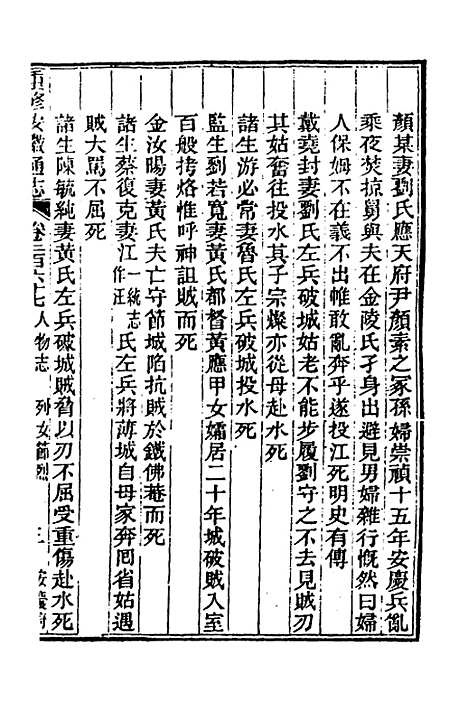 顏某妻劉氏應天府尹顏素之冢孫婦崇禎十五年安慶兵亂
乘夜焚掠舅與夫在金陵氏孑身出避見男婦雜行慨然曰婦
人保姆不在義不出帷敢亂奔乎遂投江死明史有傳
戴堯封妻劉氏左兵破城姑老不能步履劉守之不去見賊刃
其姑奮往投水其子宗燦亦從母赴水死
諸生游必常妻魯氏左兵破城投水死
監生劉若寬妻黃氏都督黃應甲女孀居二十年城破賊入室
百般拷烙惟呼神詛賊而死
金汝暘妻黃氏夫亡守節城陷抗賊於鐵佛菴而死
諸生蔡復克妻江一統志作汪氏左兵將薄城自母家奔囘省姑遇
賊大罵不屈死
諸生陳毓純妻黃氏左兵破城賊脅以刃不屈受重傷赴水死
重修安徽通志 卷二百六十七 人物志 列女節烈 三 安慶府